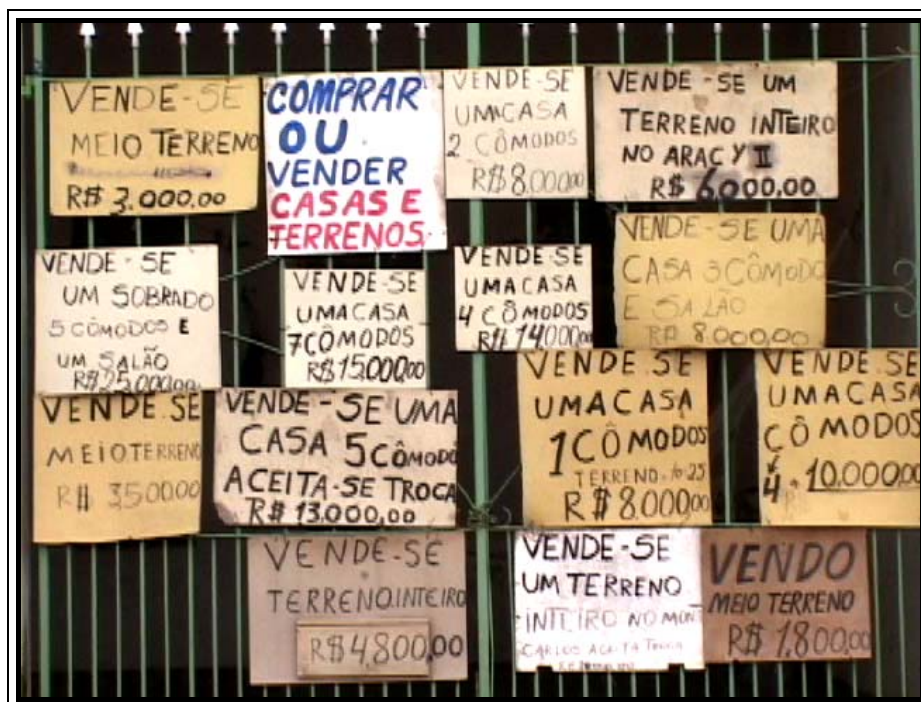 VENDE-SE
MEIO TERRENO
R$ 3.000,00
COMPRAR
OU
VENDER
CASAS E
TERRENOS
VENDE-SE
UMA CASA
2 CÔMODOS
R$ 8.000,00
VENDE-SE UM
TERRENO INTEIRO
NO ARACY II
R$ 6000,00
VENDE-SE
UM SOBRADO
5 CÔMODOS E
UM SALÃO
R$ 25.000,00
VENDE-SE
UMA CASA
7 CÔMODOS
R$ 15.000,00
VENDE-SE
UMA CASA
4 CÔMODOS
R$ 14.000,00
VENDE-SE UMA
CASA 3 CÔMODO
E SALÃO
R$ 8.000,00
VENDE SE
MEIO TERRENO
R$ 3500,00
VENDE-SE UMA
CASA 5 CÔMODO
ACEITA-SE TROCA
R$ 13.000,00
VENDE SE
UMA CASA
1 CÔMODOS
TERRENO 10-25
R$ 8.000,00
VENDE-SE
UMA CASA
CÔMODOS
4 10.000,00
VENDE-SE
TERRENO INTEIRO
R$ 4,800,00
VENDE-SE
UM TERRENO
INTEIRO NO MONT
CARLOS ACEITA TROCA
VENDO
MEIO TERRENO
R$ 1.800,00